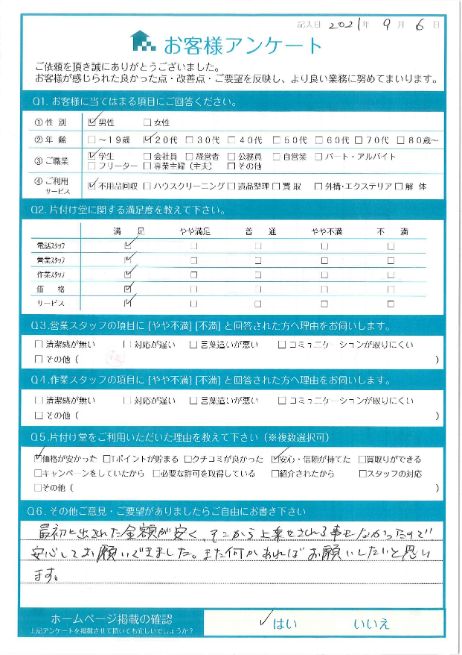 記入日 2021年 9月 6日
お客様アンケート
ご依頼を頂き誠にありがとうございました。
お客様が感じられた良かった点・改善点・ご要望を反映し、より良い業務に努めてまいります。
Q1. お客様に当てはまる項目にご回答ください。
① 性 別 ☑男性 □女性
② 年 齢 □~19歳 ☑20代 □30代 □40代 □50代 □60代 □70代 □80歳~
③ ご職業 ☑学生 □会社員 □経営者 □公務員 □自営業 □パート・アルバイト
□フリーター □専業主婦(主夫) □その他
④ ご利用サービス ☑不用品回収 □ハウスクリーニング □遺品整理 □買取 □外構・エクステリア □解体
Q2. 片付け堂に関する満足度を教えて下さい。
満 足 やや満足 普 通 やや不満 不 満
電話スタッフ ☑ □ □ □ □
営業スタッフ ☑ □ □ □ □
作業スタッフ ☑ □ □ □ □
価 格 ☑ □ □ □ □
サービス ☑ □ □ □ □
Q3. 営業スタッフの項目に [やや不満] [不満] と回答された方へ理由をお伺いします。
□清潔感が無い □対応が遅い □言葉遣いが悪い □コミュニケーションが取りにくい
□その他 ( )
Q4. 作業スタッフの項目に [やや不満] [不満] と回答された方へ理由をお伺いします。
□清潔感が無い □対応が遅い □言葉遣いが悪い □コミュニケーションが取りにくい
□その他 ( )
Q5. 片付け堂をご利用いただいた理由を教えて下さい (※複数選択可)
☑価格が安かった □Tポイントが貯まる □クチコミが良かった ☑安心・信頼が持てた □買取りができる
□キャンペーンをしていたから □必要な許可を取得している □紹介されたから □スタッフの対応
□その他 ( )
Q6. その他ご意見・ご要望がありましたらご自由にお書き下さい
最初に出された金額が安く、そこから上乗せされる事もなかったので
安心してお願いできました。また何かあればお願いしたいと思い
ます。
ホームページ掲載の確認
上記アンケートを掲載させて頂いても宜しいでしょうか?
✓はい いいえ